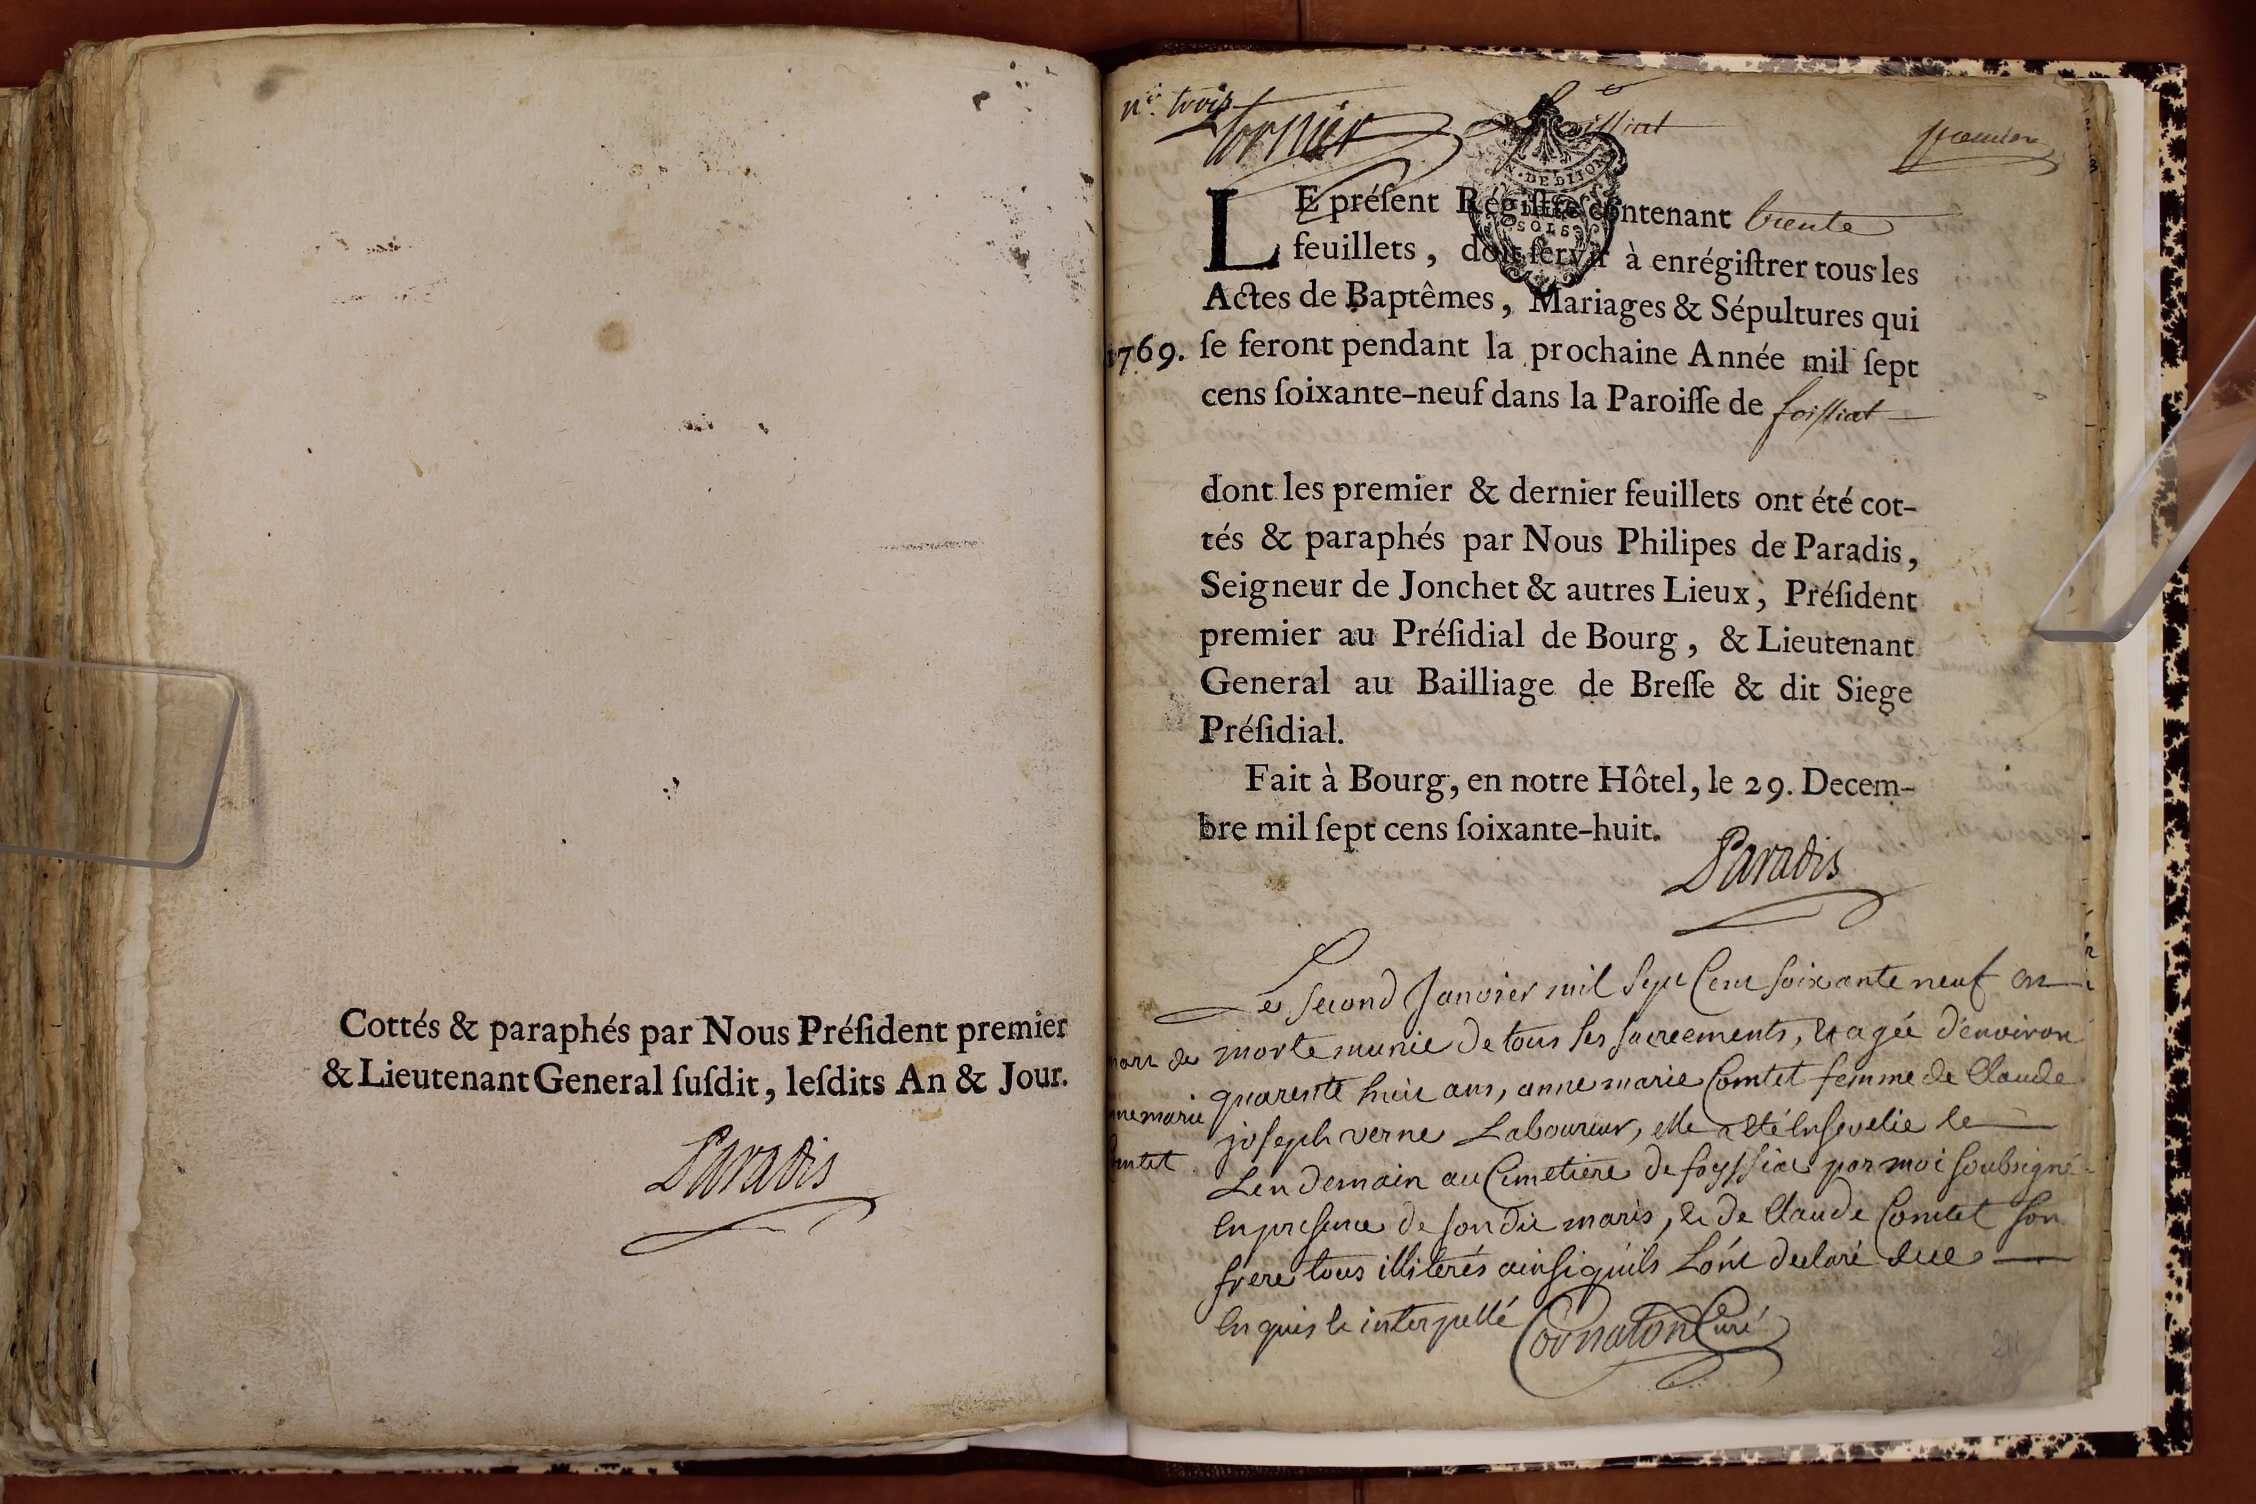 Cottés & paraphés par Nous Préſident premier
& Lieutenant General ſuſdit, leſdits An & Jour.
Paradis
n.o trois
foissiat
premier
DE DIJON
SOLS
LE préſent Régiſtre contenant trente
feuillets, doit ſervir à enrégiſtrer tous les
Actes de Baptêmes, Mariages & Sépultures qui
1769. ſe feront pendant la prochaine Année mil ſept
cens ſoixante-neuf dans la Paroiſſe de foissiat
dont les premier & dernier feuillets ont été cot-
tés & paraphés par Nous Philipes de Paradis,
Seigneur de Jonchet & autres Lieux, Préſident
premier au Préſidial de Bourg, & Lieutenant
General au Bailliage de Breſſe & dit Siege
Préſidial.
Fait à Bourg, en notre Hôtel, le 29. Decem-
bre mil ſept cens ſoixante-huit.
Paradis
Le second Janvier mil sept Cent soixante neuf est
mort de
morte munie de tous ses sacreements, et agée d'environ
quarente huit ans, anne marie Comtet femme de Claude
anne marie
joseph verne Laboureur, elle a eté Ensevelie le
Comtet
Lendemain au Cimetiere de foyssiat par moi soubsigné
En presence de son dit maris, et de Claude Comtet son
frere tous illiterés ainsi quils Lont declaré
Enquis et interpellé Cornaton Curé